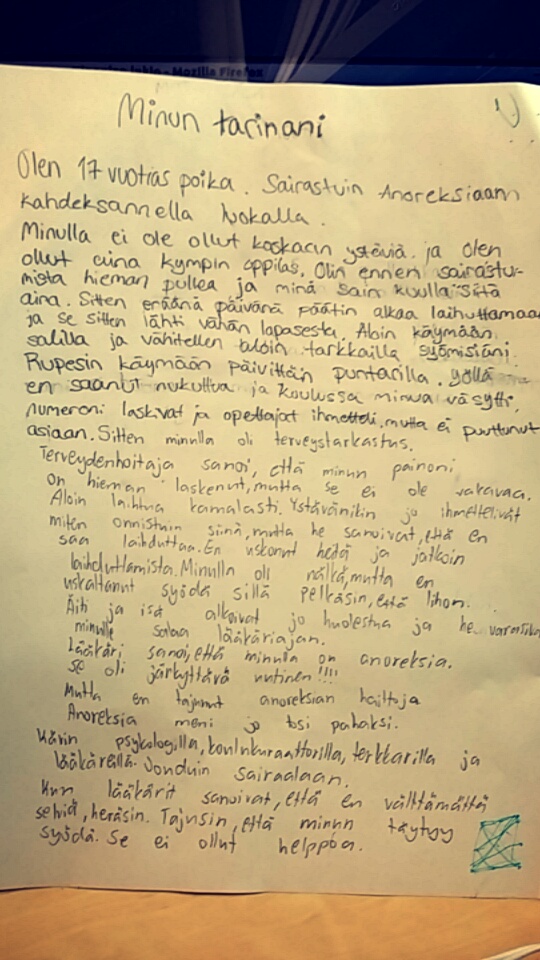 Mozilla Firefox
Minun tarinani
Olen 17 vuotias poika. Sairastuin Anoreksiaan
kahdeksannella luokalla.
Minulla ei ole ollut koskaan ystäviä. ja olen
ollut aina kympin oppilas. Olin ennen sairastu-
mista hieman pullea ja minä sain kuulla siitä
aina. Sitten eräänä päivänä päätin alkaa laihuttamaan
ja se sitten lähti vähän lapasesta. Aloin käymään
salilla ja vähitellen aloin tarkkailla syömisiäni.
Rupesin käymään päivittäin puntarilla. yöllä
en saanut nukuttua ja koulussa minua väsytti.
numeroni laskivat ja opettajat ihmetteli, mutta ei puuttunut
asiaan. Sitten minulla oli terveystarkastus.
Terveydenhoitaja sanoi, että minun painoni
on hieman laskenut, mutta se ei ole vakavaa.
Aloin laihtua kamalasti. Ystävänikin jo ihmettelivät
miten onnistuin siinä, mutta he sanoivat, että en
saa laihduttaa. En uskonut heitä ja jatkoin
laihduttamista. Minulla oli nälkä, mutta en
uskaltanut syödä sillä pelkäsin, että lihon.
Äiti ja isä alkoivat jo huolestua ja he varasivat
minulle salaa lääkäriajan.
Lääkäri sanoi, että minulla on anoreksia.
se oli järkyttävä uutinen!!!!
Mutta en tajunnut anoreksian haittoja
Anoreksia meni jo tosi pahaksi.
Kävin psykologilla, koulukuraattorilla, terkkarilla ja
lääkärillä. Jouduin sairaalaan.
Kun lääkärit sanoivat, että en välttämättä
selviä, heräsin. Tajusin, että minun täytyy
syödä. Se ei ollut helppoa.